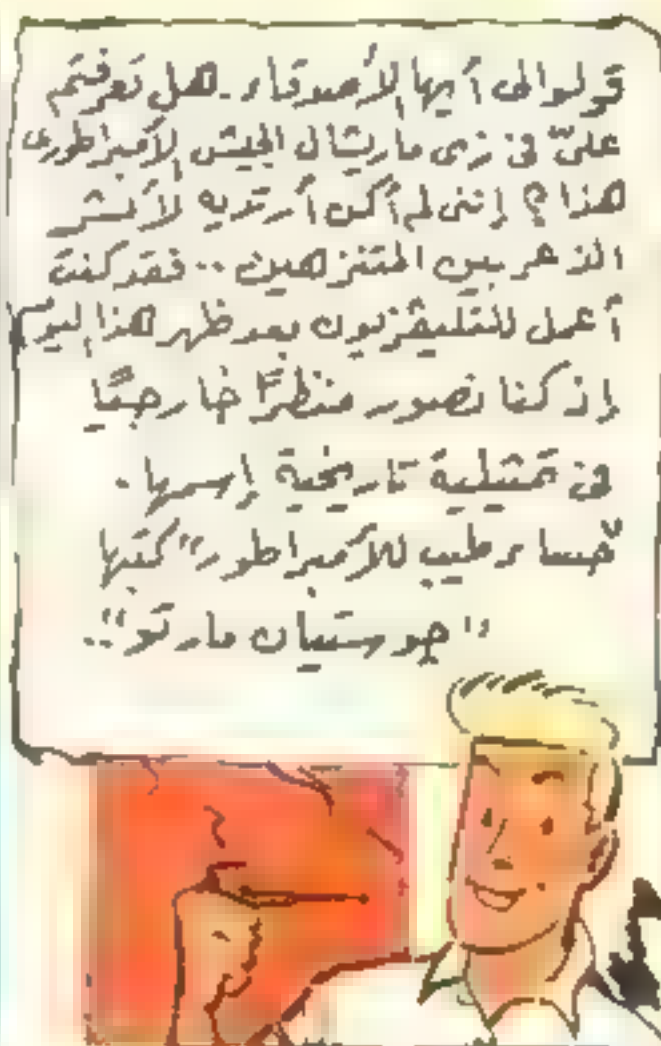 قولوا لى أيها الأصدقاء. هل تعرفتم
علىّ فى زى ماريشال الجيش الأمبراطورى
هذا؟ إننى لم أكن أرتديه لأنشر
الذعر بين المتنزهين .. فقد كنت
أعمل للتليفزيون بعد ظهر هذا اليوم
إذ كنا نصور منظرًا خارجيًا
فى تمثيلية تاريخية إسمها.
"حساء طيب للأمبراطور" كتبها
"جوستيان مارتو"..